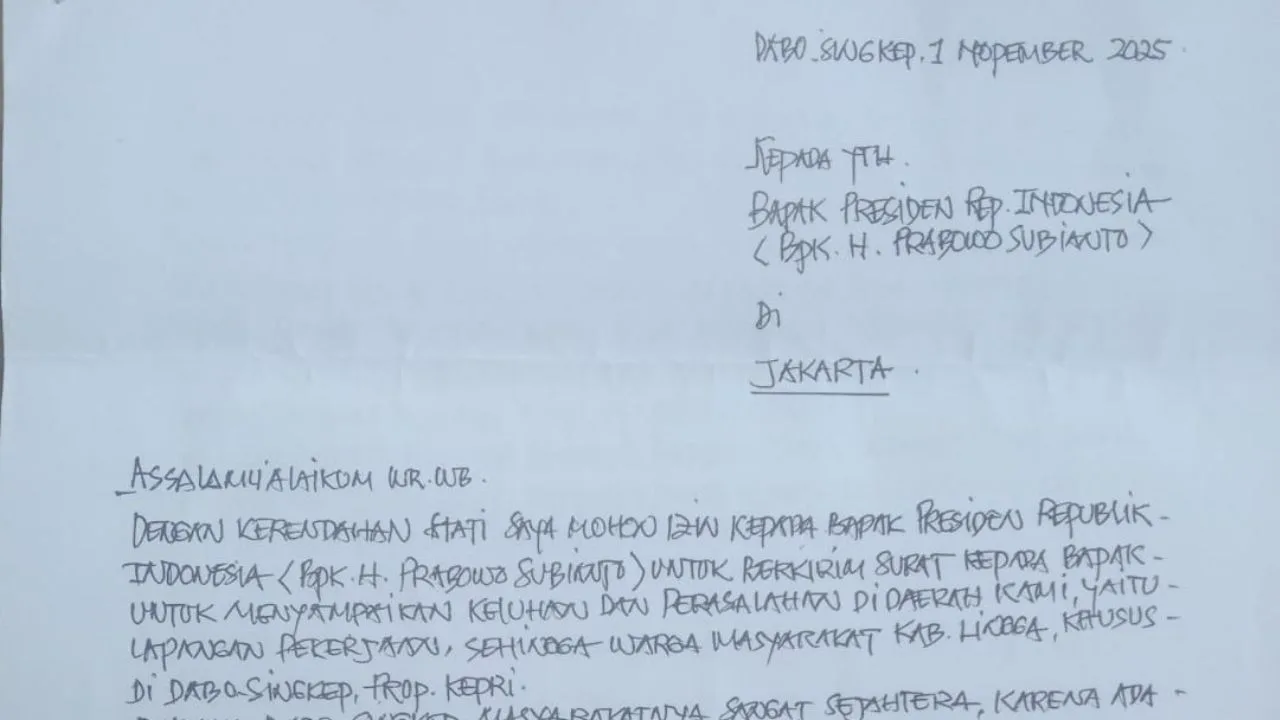 DABO-SINGKEP, 1 NOPEMBER 2025.
KEPADA YTH.
BAPAK PRESIDEN REP. INDONESIA
(BPK. H. PRABOWO SUBIANTO)
Di
JAKARTA.
ASSALAMU'ALAIKUM WR. WB.
DENGAN KERENDAHAN HATI SAYA MOHON IZIN KEPADA BAPAK PRESIDEN REPUBLIK -
INDONESIA (BPK. H. PRABOWO SUBIANTO) UNTUK BERKIRIM SURAT KEPADA BAPAK -
UNTUK MENYAMPAIKAN KELUHAN DAN PERASALAHAN DI DAERAH KAMI, YAITU -
LAPANGAN PEKERJAAN, SEHINGGA WARGA MASYARAKAT KAB. LINGGA, KHUSUS -
DI DABO-SINGKEP, PROP. KEPRI.
MASYARAKATNYA SANGAT SEJAHTERA, KARENA ADA -